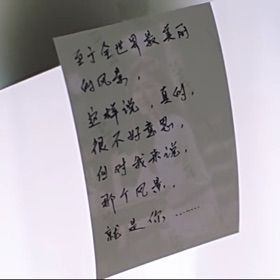 至于全世界最美丽
的风景，
这样说，真的，
很不好意思，
但对我来说，
那个风景，
就是你，……